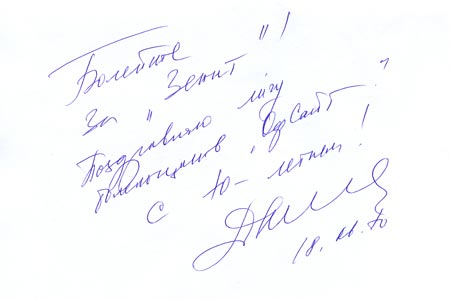 Болейте
за "Зенит"!
Поздравляю лигу
болельщиков
с 10-летием!
18.